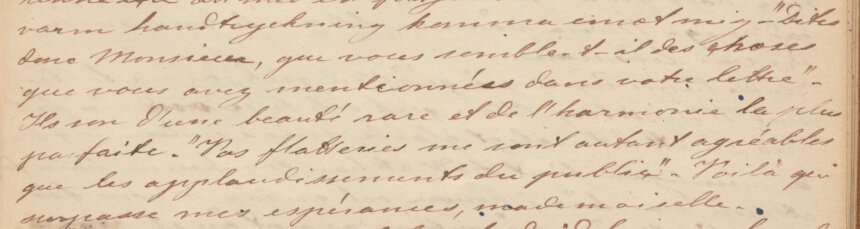 varm handtryckning komma emot mig - "Dites
donc Monsieur, que vous semble-t-il des choses
que vous avez mentionnées dans votre lettre" -
Ils son d'une beauté rare et de l'harmonie la plus
parfaite. - "Vos flatteries me sont autant agréables
que les applaudissements du public" - Voilà qui
surpasse mes espérances, mademoiselle. -